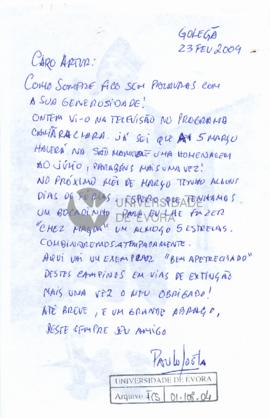 GOLEGÃ
23 FEV 2009
CARO ARTUR:
COMO SEMPRE FICO SEM PALAVRAS COM
A SUA GENEROSIDADE!
ONTEM VI-O NA TELEVISÃO NO PROGRAMA
CÂMARA CLARA. JÁ SEI QUE A 5 MARÇO
HAVERÁ NA UMA HOMENAGEM
AO JÚLIO, PARABÉNS MAIS UMA VEZ!
NO PRÓXIMO MÊS DE MARÇO TENHO ALGUNS
DIAS DE FÉRIAS, ESPERO QUE TENHAMOS
UM BOCADINHO PARA EU LHE FAZER
"CHEZ MAGDA" UM ALMOÇO 5 ESTRELAS.
COMBINAREMOS ATEMPADAMENTE.
AQUI VAI UM EXEMPLAR "BEM APETRECHADO"
DESTES CAMPINOS EM VIAS DE EXTINÇÃO
MAIS UMA VEZ O MEU OBRIGADO!
ATÉ BREVE, E UM GRANDE ABRAÇO,
DESTE SEMPRE SEU AMIGO
UNIVERSIDADE
DE ÉVORA
UNIVERSIDADE DE EVORA
Arquivo FCS 01-108.04